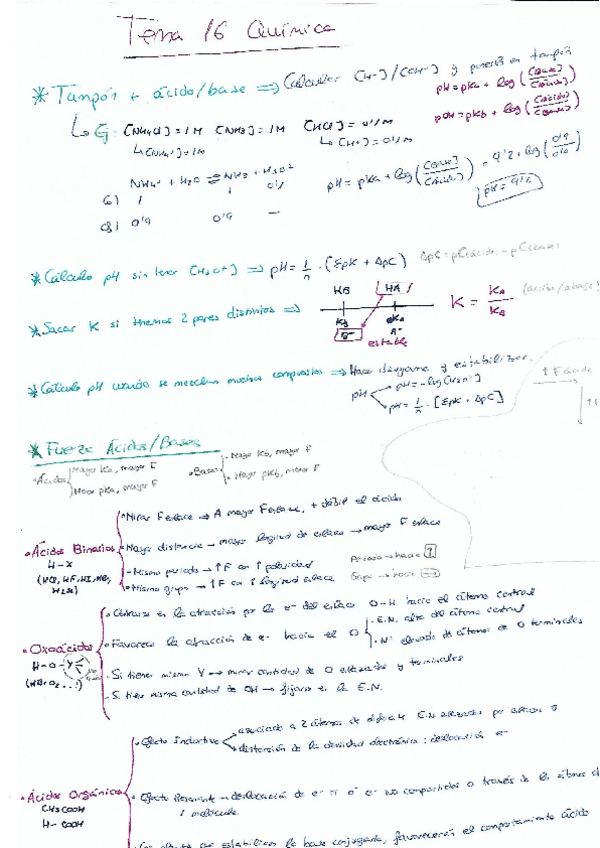 Tema 16 Química
* Tampón + ácido/base ⟹ Calcular [H+]/[OH-] y ponerlo en tampón
pH = pKa + log([base]/[ácido])
pOH = pKb + log([ácido]/[base])
↳ Ej: [NH4Cl] = 1M [NH3] = 1M [HCl] = 0'1M
↳ [NH4+] = 1M ↳ [H+] = 0'1M
NH4+ + H2O ⇌ NH3 + H3O+
1 1 0'1
0'9 0'9 —
pH = pKa + log([base]/[ácido]) = 9'2 + log
pH = 9'2
* Cálculo pH sin tener [H3O+] ⟹ pH = 1/n · [ΣpK + ΔpC] ΔpC = pC(ácido) - pC(base)
* Sacar K si tenemos 2 pares distintos ⟹
HB HA
Kb
B- A-
estable
K = KA/KB (ácido/base)
* Cálculo pH cuando se mezclan muchos compuestos ⟹ Hacer diagrama y estabilizar.
pH pH = -log[H3O+]
pH = 1/n · [ΣpK + ΔpC]
↑ F ácido
* Fuerza Ácidos/Bases
• Ácidos - Mayor Ka, mayor F
- Menor pKa, mayor F
• Bases - Mayor Kb, mayor F
- Menor pKb, mayor F
• Ácidos Binarios
H-X
- Mayor distancia → mayor longitud de enlace → mayor F enlace
- Mismo periodo → ↑F con ↑ polaridad
- Mismo grupo → ↑F con ↑ longitud enlace
• Oxoácidos
H-O-Y
(HBrO2 ...)
- Centrarse en la atracción por los e- del enlace O-H hacia el átomo central
- Favorecer la atracción de e- hacia el O
- E.N. alta del átomo central
- Nº elevado de átomos de O terminales
- Si tienen misma Y → mirar cantidad de O enlazados y terminales
- Si tiene misma cantidad de OH → fijarse en la E.N.
• Ácidos Orgánicos
CH3COOH
H-COOH
• Efecto Inductivo
asociado a 2 átomos de distinta E.N enlazados por enlace σ
distorsión de la densidad electrónica: deslocación e-
• Efecto Resonante → deslocación de e- π o e- no compartidos a través de los átomos de
1 molécula.
estabilicen la base conjugada, favorecerán el comportamiento ácido